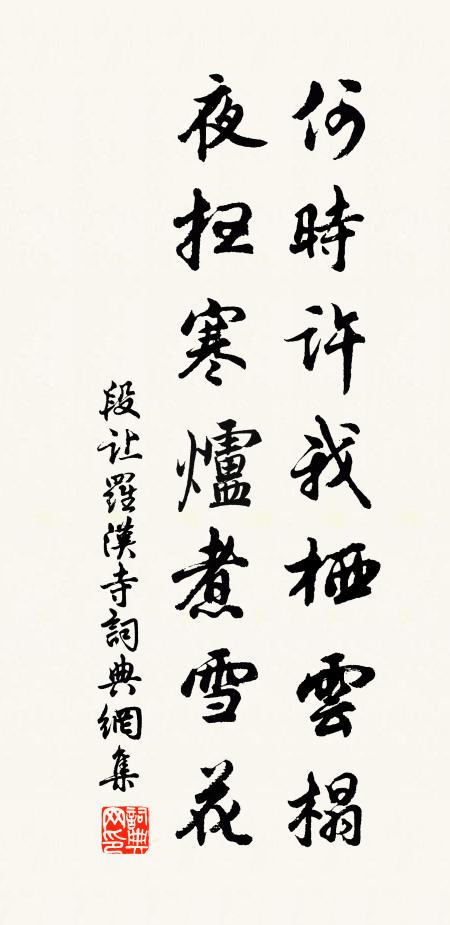 何時許我栖雲榻
夜扫寒爐煮雪花
段让羅漢寺詞典網集
詞典网印